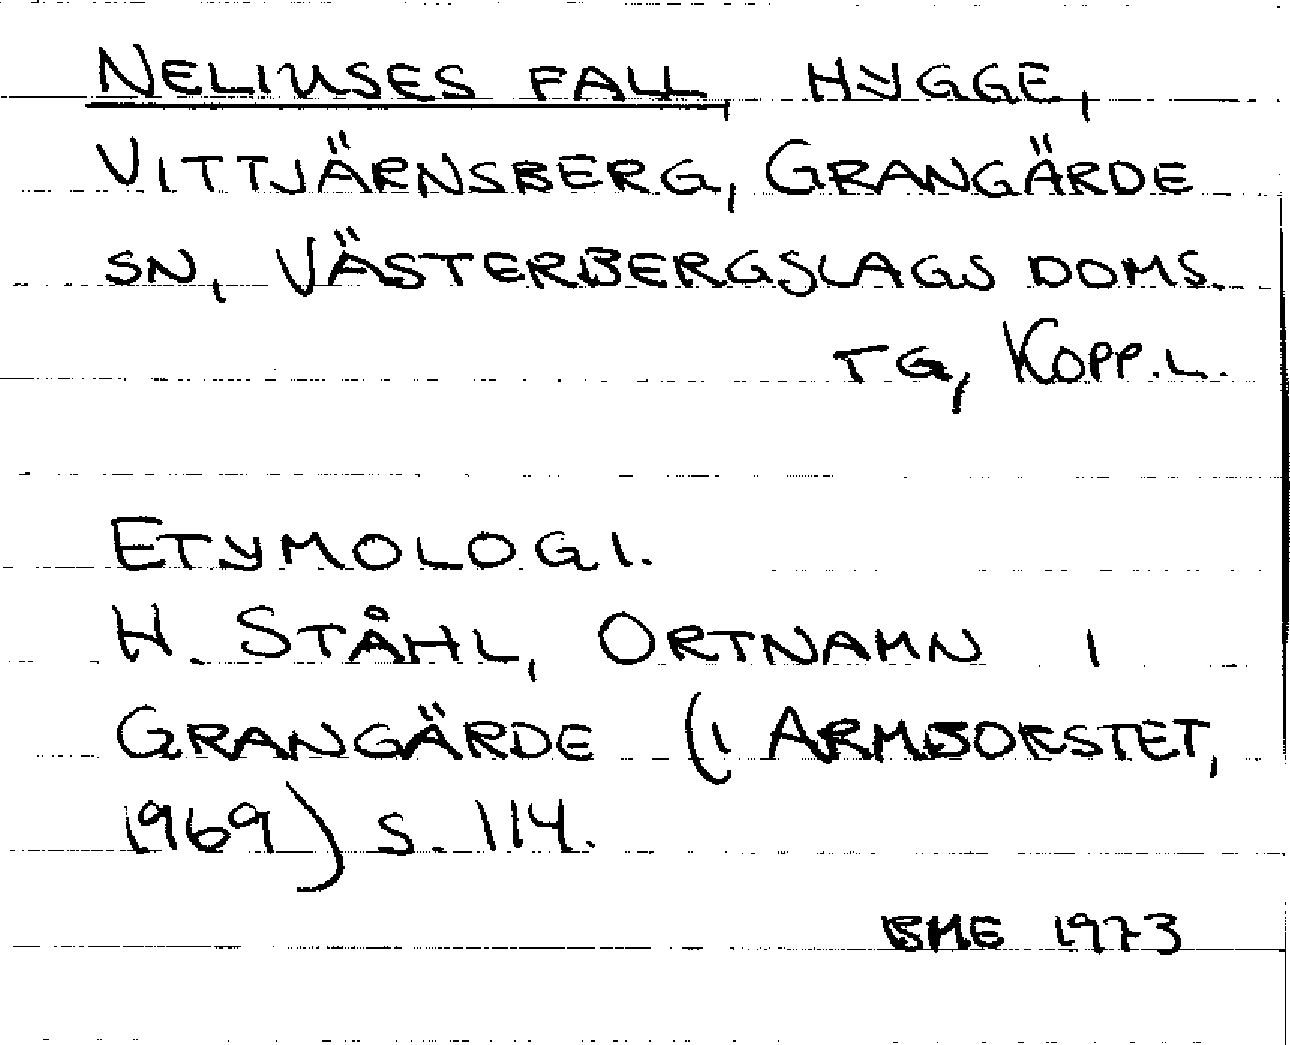 NELIUSES FALL, HYGGE,
VITTJÄRNSBERG, GRANGÄRDE
SN, VÄSTERBERGSLAGS DOMS.
TG, KOPP.L.
ETYMOLOGI.
H. STÅHL, ORTNAMN I
GRANGÄRDE (I ARMBORSTET,
1969) S. 114.
BME 1973